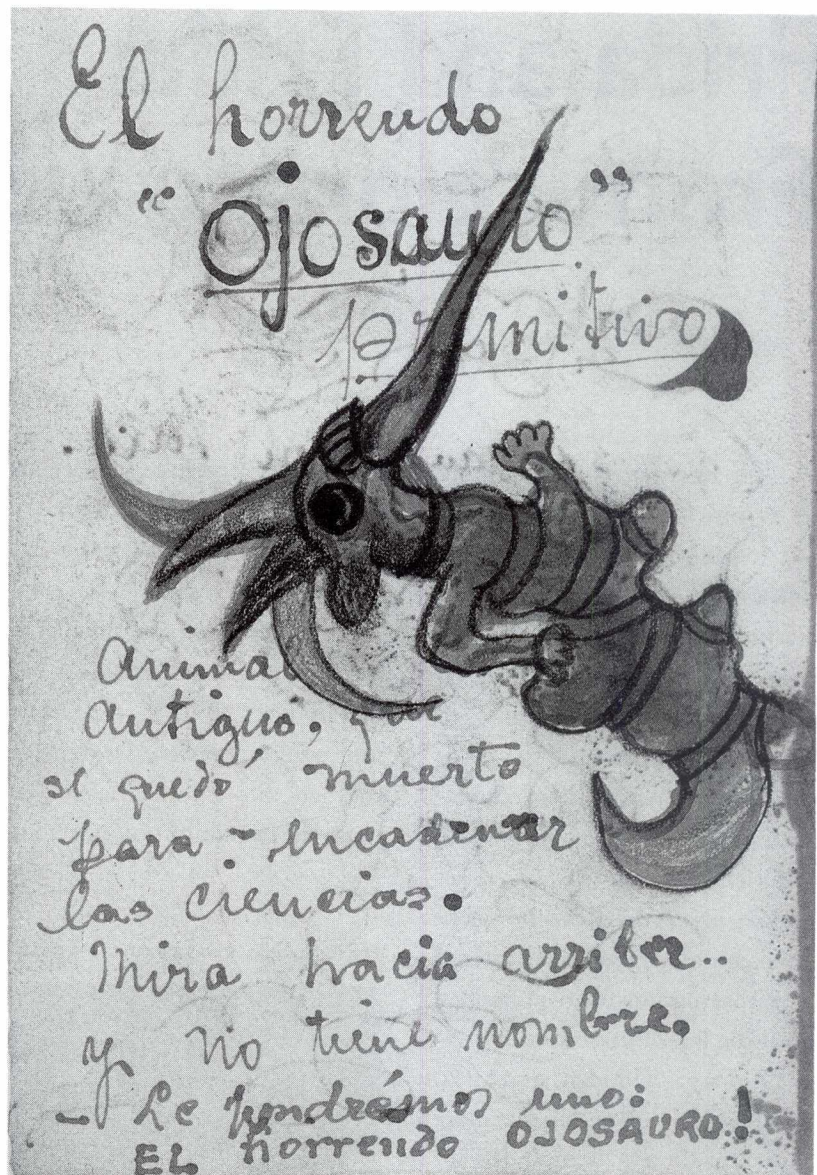 El horrendo
"Ojosauro"
primitivo
Animal
antiguo, que
se quedó muerto
para - encadenar
las ciencias.
Mira hacia arriba..
y no tiene nombre.
- Le pondrémos uno:
EL horrendo OJOSAURO!